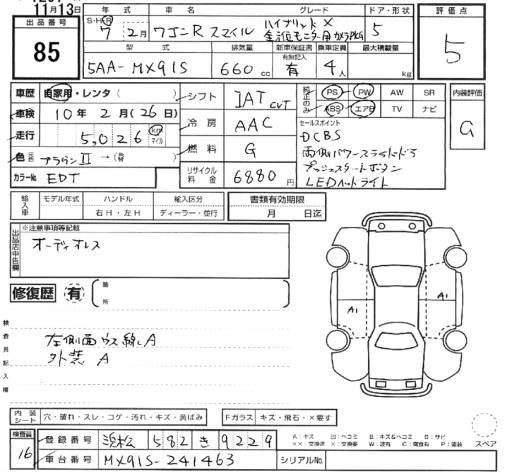 11月13日
出品番号 85
年式 7年 2月
車名 ワゴンR スマイル
グレード ハイブリッドX
全方位モニター用カメラPKG
ドア・形状 5
評価点 5
型式 5AA-MX91S
排気量 660 cc
新車保証書 有無記入 有
乗車定員 4人
最大積載量 kg
車歴 自家用・レンタ( )
車検 10年 2月(26日)
走行 5,026 km マイル
色 ブラウンⅡ →( )
カラーNo. EDT
シフト IAT CVT
冷房 AAC
燃料 G
リサイクル料金 6880円
純正のみ PS PW AW SR
ABS エアB TV ナビ
セールスポイント
DCBS
両側パワースライドドア
プッシュスタートボタン
LEDヘッドライト
内装評価 G
輸入車 モデル年式 年 ハンドル 右H・左H 輸入区分 ディーラー・並行
書類有効期限 月 日迄
出品店申告欄 ※注意事項等記載
オーディオレス
修復歴 有 箇所
検査員記入欄
左側面ウス線A
外装 A
A1 A1
内装シート 穴・破れ・スレ・コゲ・汚れ・キズ・黄ばみ
Fガラス キズ・飛石・×要す
スペア
検査員 16
登録番号 浜松 582 き 9229
A:キズ U:ヘコミ B:キズ&ヘコミ S:サビ
××:交換済 ×:交換要 W:波有 C:腐食有 P:塗装
車台番号 MX91S-241463
シリアルNo.